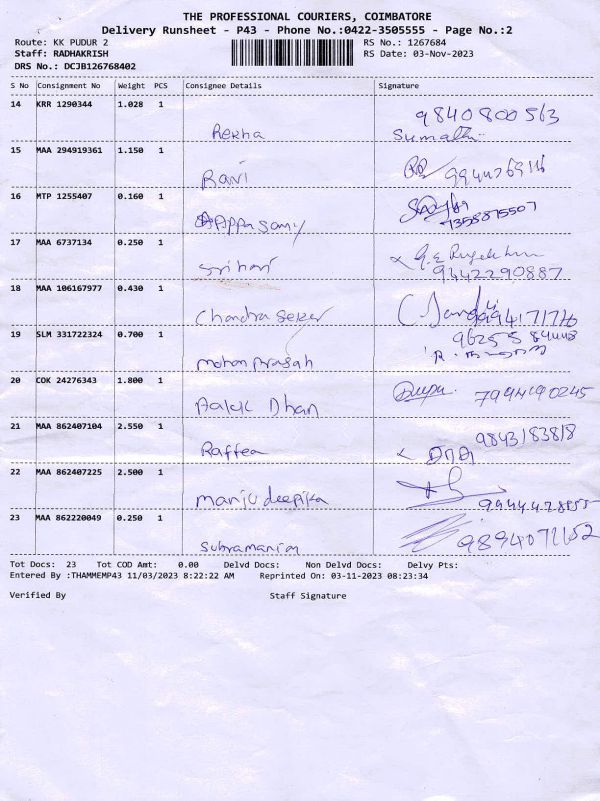 THE PROFESSIONAL COURIERS, COIMBATORE
Delivery Runsheet - P43 - Phone No.:0422-3505555 - Page No.:2
Route: KK PUDUR 2 RS No.: 1267684
Staff: RADHAKRISH RS Date: 03-Nov-2023
DRS No.: DCJB126768402
S No Consignment No Weight PCS Consignee Details Signature
14 KRR 1290344 1.028 1 9840800563
Rekha Sumathi
15 MAA 294919361 1.150 1
Ravi 9944769116
16 MTP 1255407 0.160 1
Appasamy 7358875507
17 MAA 6737134 0.250 1
Srihari 9442290887
18 MAA 106167977 0.430 1
Chandra Seker
19 SLM 331722324 0.700 1
Mohan Prasah
20 COK 24276343 1.800 1
Aalok Dhan 7944190245
21 MAA 862407104 2.550 1 9843183818
Raffea
22 MAA 862407225 2.500 1
Manju deepika
23 MAA 862220049 0.250 1
Subramaniam 9894071152
Tot Docs: 23 Tot COD Amt: 0.00 Delvd Docs: Non Delvd Docs: Delvy Pts:
Entered By :THAMMEMP43 11/03/2023 8:22:22 AM Reprinted On: 03-11-2023 08:23:34
Verified By Staff Signature